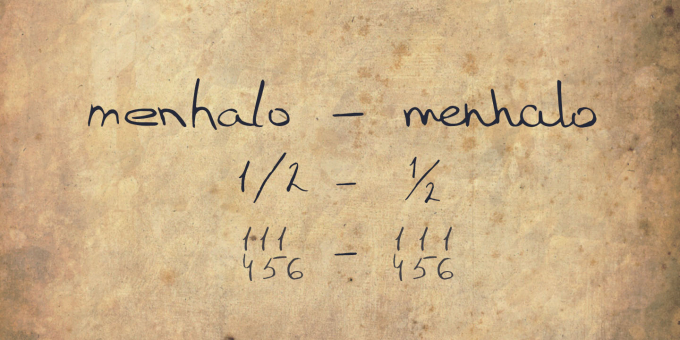 menhalo – menhalo
1/2 – ½
111 – 111
456 – 456